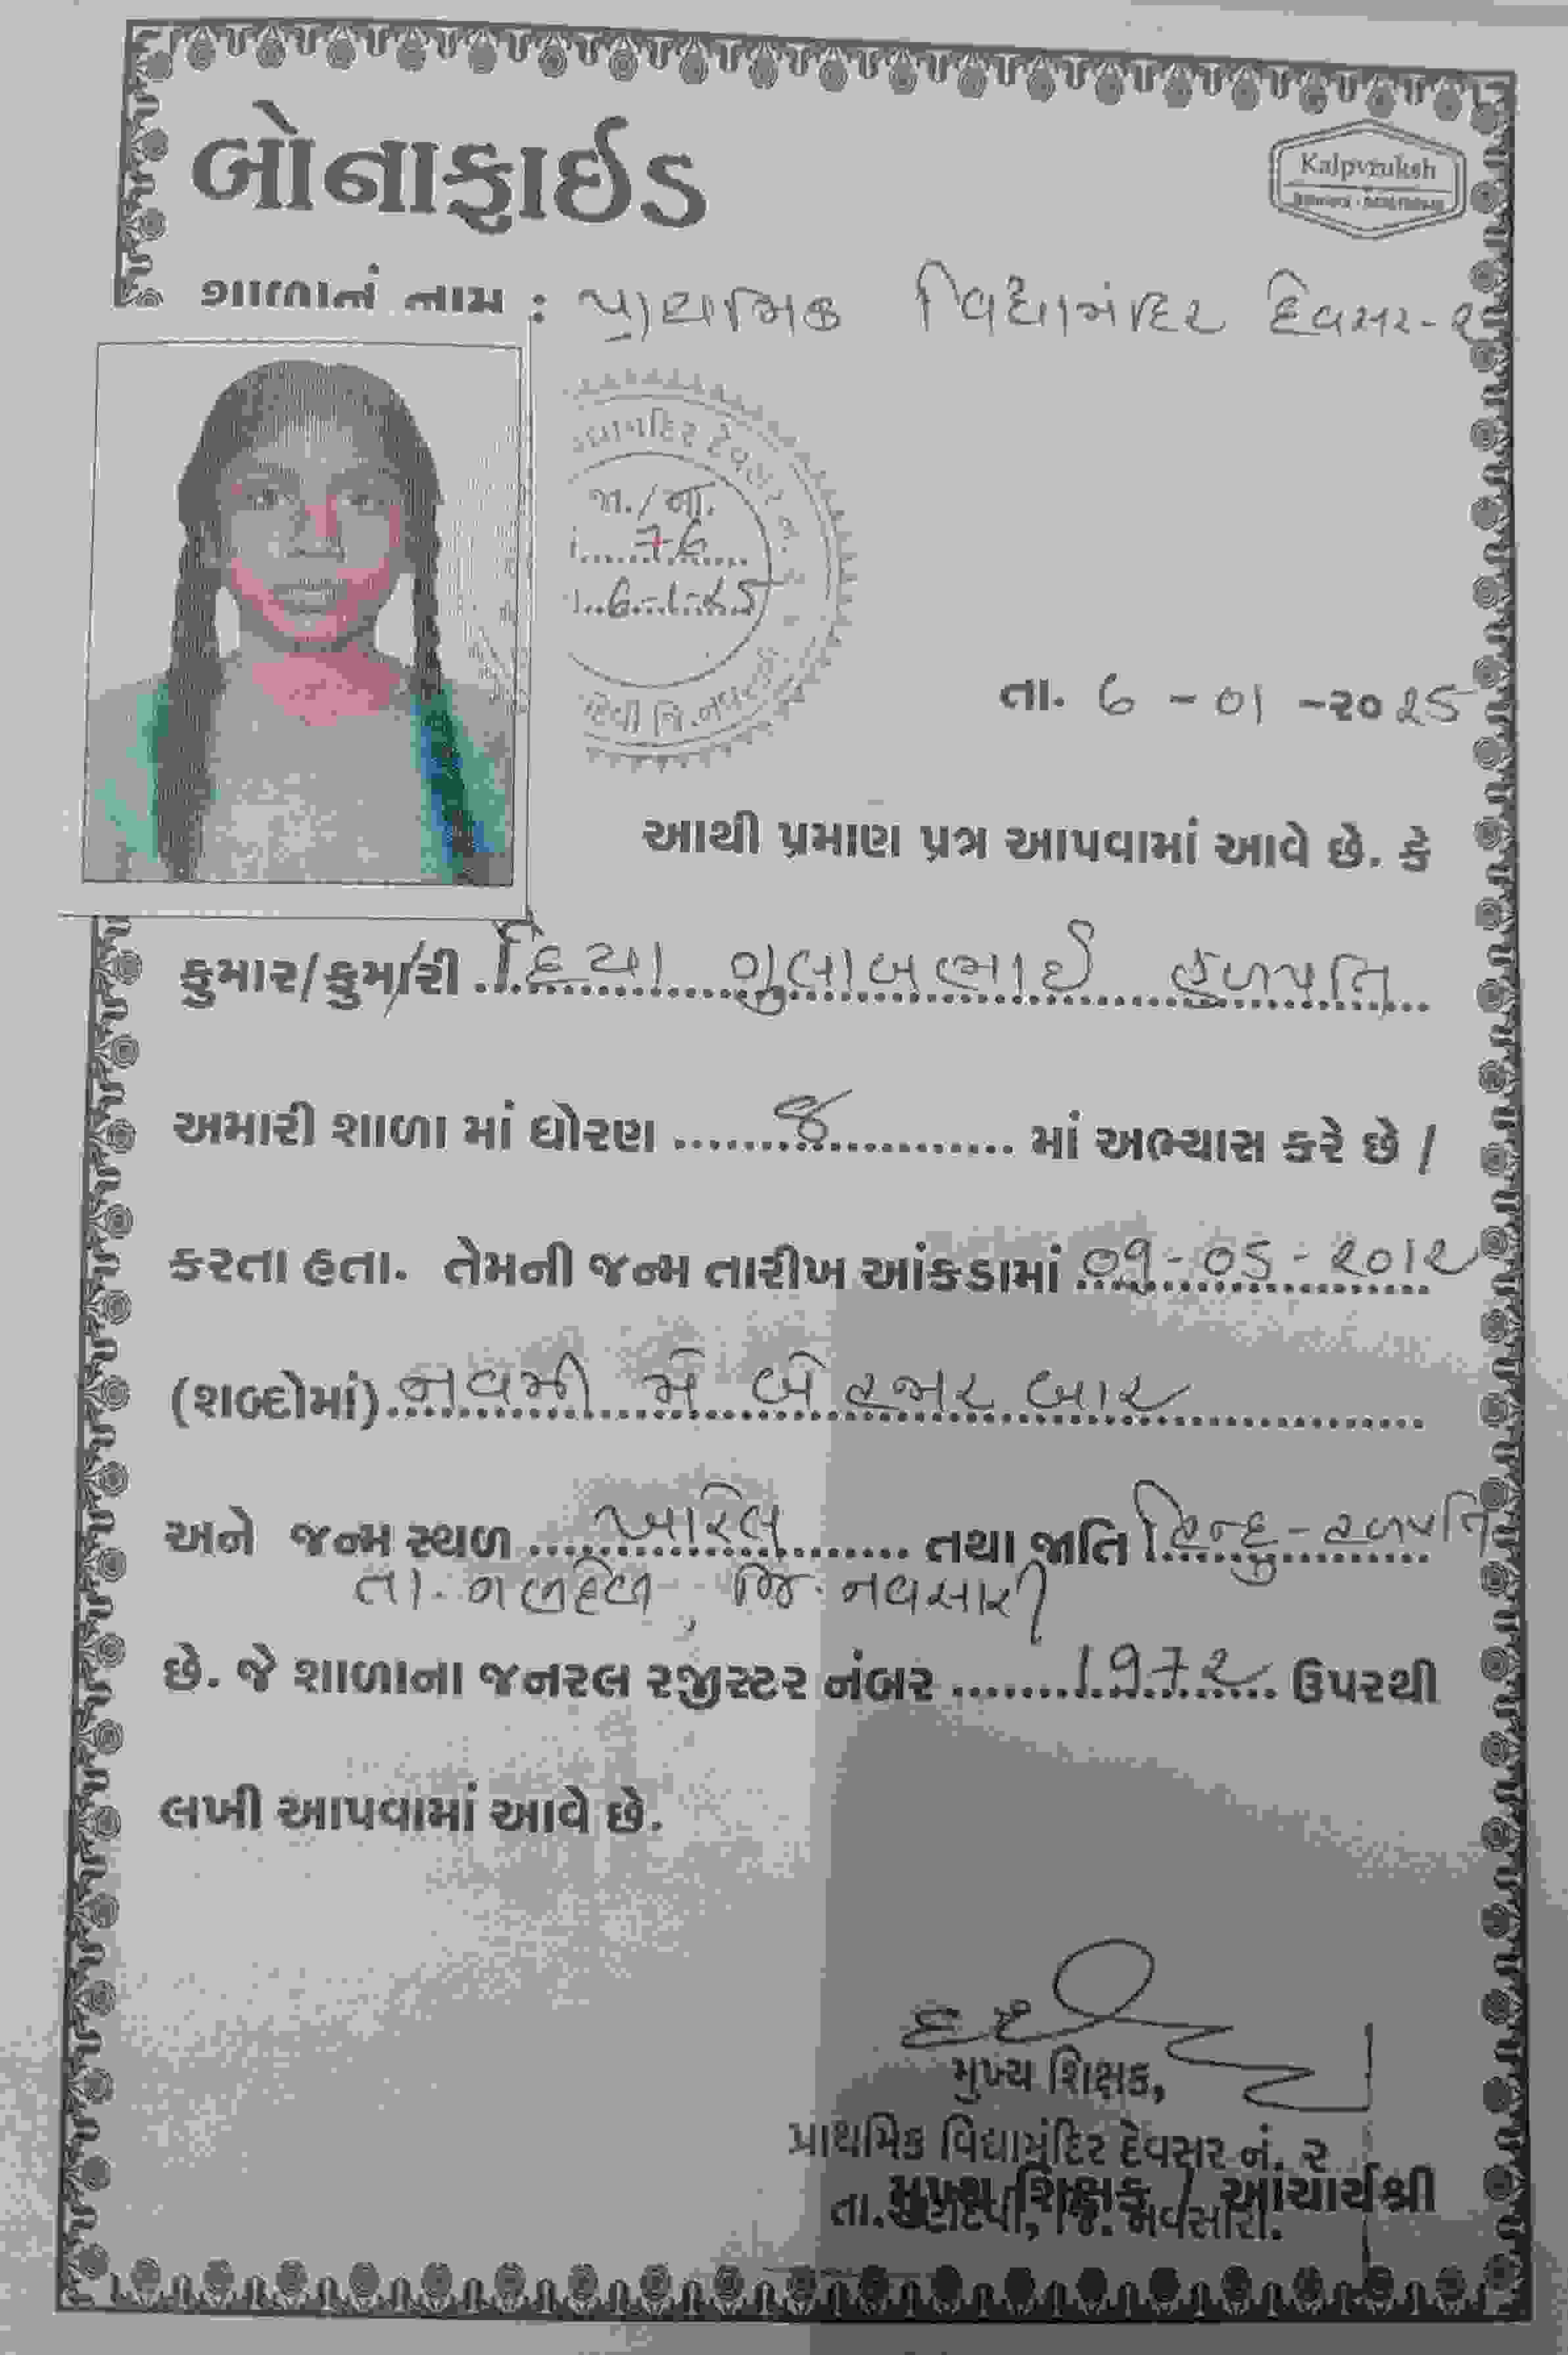 બોનાફાઈડ
Kalpvruksh
શાળાનું નામ : પ્રાથમિક વિદ્યામંદિર દેવસર-૨
જા./નં.
76
6-1-25
તા. 6 - 01 -૨૦25
આથી પ્રમાણ પત્ર આપવામાં આવે છે. કે
કુમાર/કુમારી દિયા ગુલાબભાઈ હળપતિ
અમારી શાળા માં ધોરણ ૭ માં અભ્યાસ કરે છે /
કરતા હતા. તેમની જન્મ તારીખ આંકડામાં 09-05-2012
(શબ્દોમાં) નવમી મે બે હજાર બાર
અને જન્મ સ્થળ તથા જાતિ હિન્દુ-હળપતિ
તા. જિ. નવસારી
છે. જે શાળાના જનરલ રજીસ્ટર નંબર 1972 ઉપરથી
લખી આપવામાં આવે છે.
મુખ્ય શિક્ષક,
પ્રાથમિક વિદ્યામંદિર દેવસર નં. ૨
મુખ્ય શિક્ષક / આચાર્યશ્રી
તા. ગણદેવી, જિ. નવસારી.